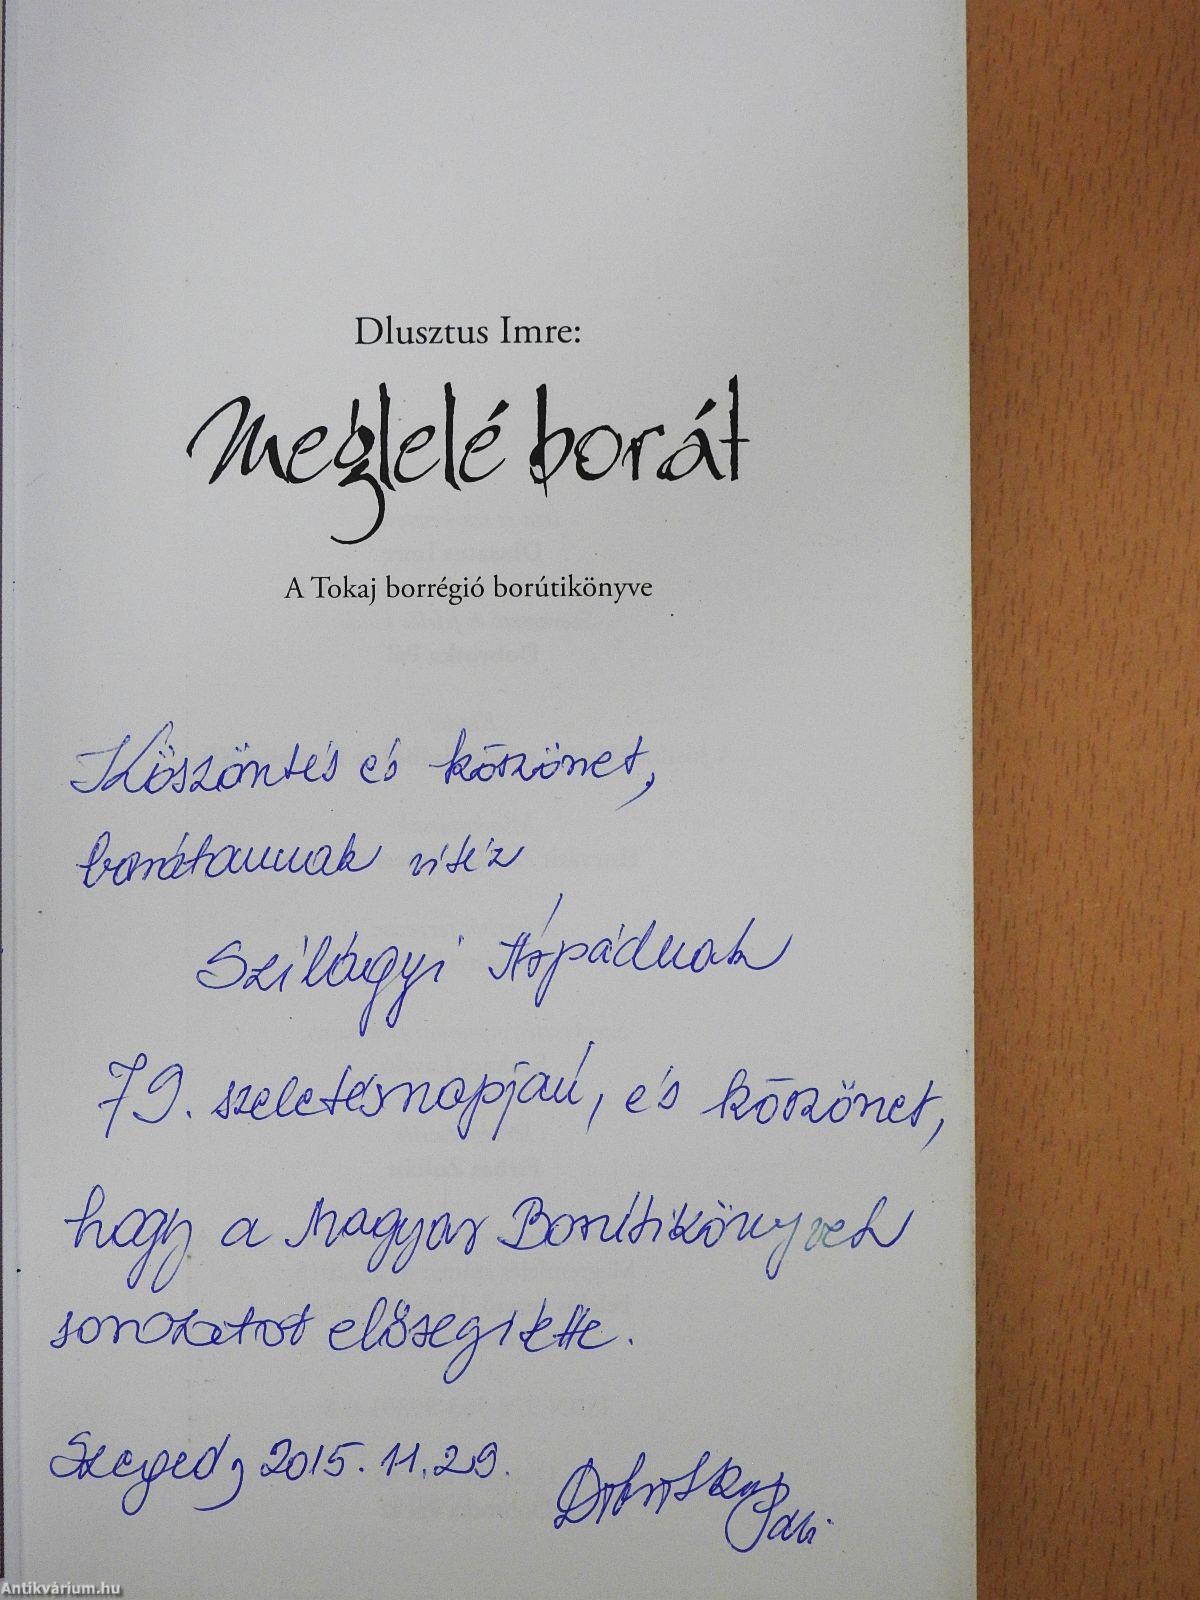 Dlusztus Imre:
Meglelé borát
A Tokaj borrégió borútikönyve
Dobrotka Pál
Köszöntés és köszönet,
barátomnak vitéz
Szilágyi Árpádnak
79. szeletésnapján, és köszönet,
hogy a Magyar Borútikönyvek
sorozatot elősegítette.
Szeged, 2015. 11. 29.
Dobrotka Pali
Antikvárium.hu